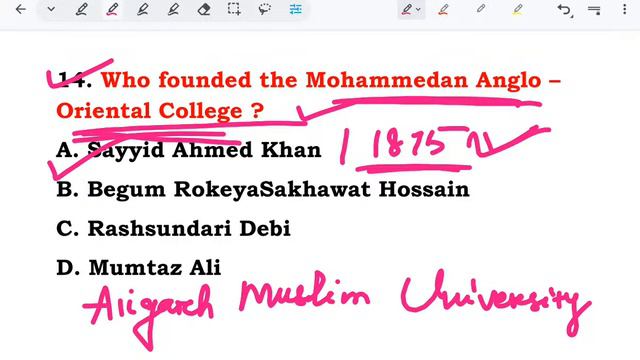 14. Who founded the Mohammedan Anglo –
Oriental College ?
A. Sayyid Ahmed Khan | 1875
B. Begum RokeyaSakhawat Hossain
C. Rashsundari Debi
D. Mumtaz Ali
Aligarh Muslim University